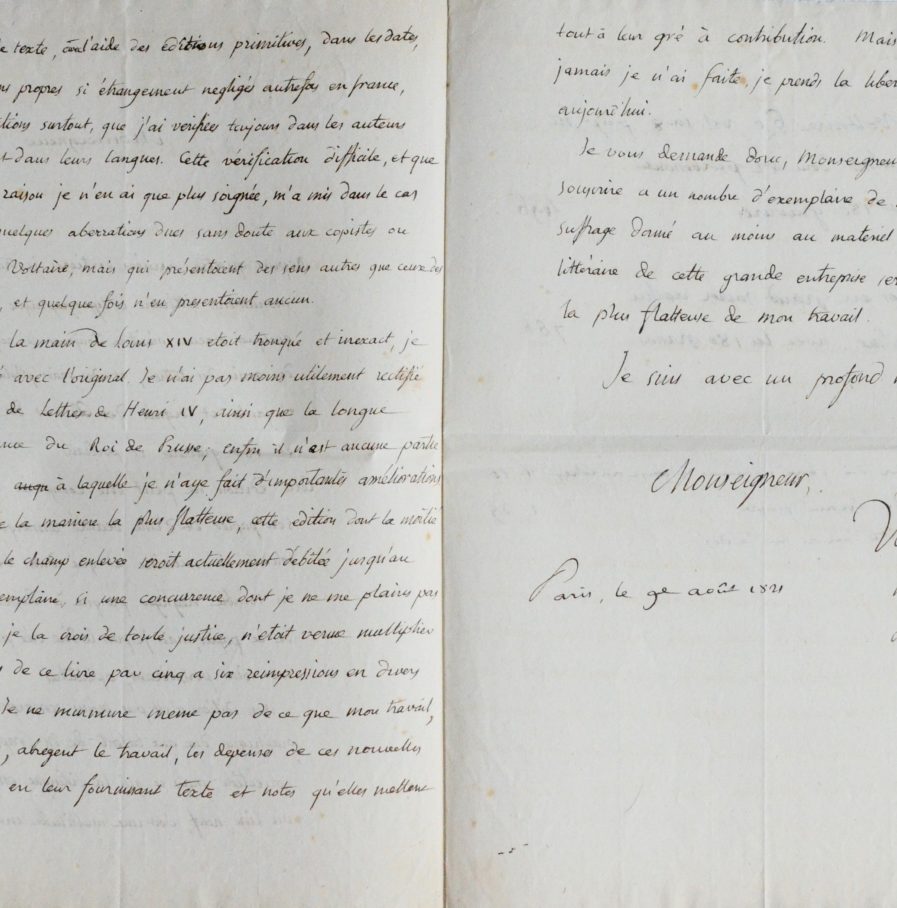 le texte, à l'aide des editions primitives, dans les dates,
ms propres si étrangement negligés autrefois en france,
itions surtout, que j'ai verifiées toujours dans les auteurs
t dans leurs langues. Cette vérification difficile, et que
raison je n'en ai que plus soignée, m'a mis dans le cas
quelques aberrations dues sans doute aux copistes ou
Voltaire, mais qui présentoient des sens autres que ceux des
, et quelque fois n'en presentoient aucun.
la main de Louis XIV etoit tronqué et inexact, je
avec l'original. Je n'ai pas moins utilement rectifié
de Lettres de Henri IV, ainsi que la longue
nce du Roi de Prusse; enfin il n'est aucune partie
à laquelle je n'aye fait d'importantes améliorations
la maniere la plus flatteuse, cette edition dont la moitié
le champ enlevée seroit actuellement débitée jusqu'au
emplaire, si une concurence dont je ne me plains pas
je la crois de toute justice, n'étoit venue multiplier
de ce livre par cinq a six reimpressions en divers
Je ne murmure meme pas de ce que mon travail,
, abregent le travail, les depenses de ces nouvelles
en leur fournissant texte et notes qu'elles mettent
tout à leur gré à contribution. Mais
jamais je n'ai faite, je prends la liber
aujourd'hui.
Je vous demande donc, Monseigneur
souscrire a un nombre d'exemplaire de
suffrage donné au moins au materiel
littéraire de cette grande entreprise ser
la plus flatteuse de mon travail.
Je suis avec un profond
Monseigneur,
V
Paris, le 9e août 1821